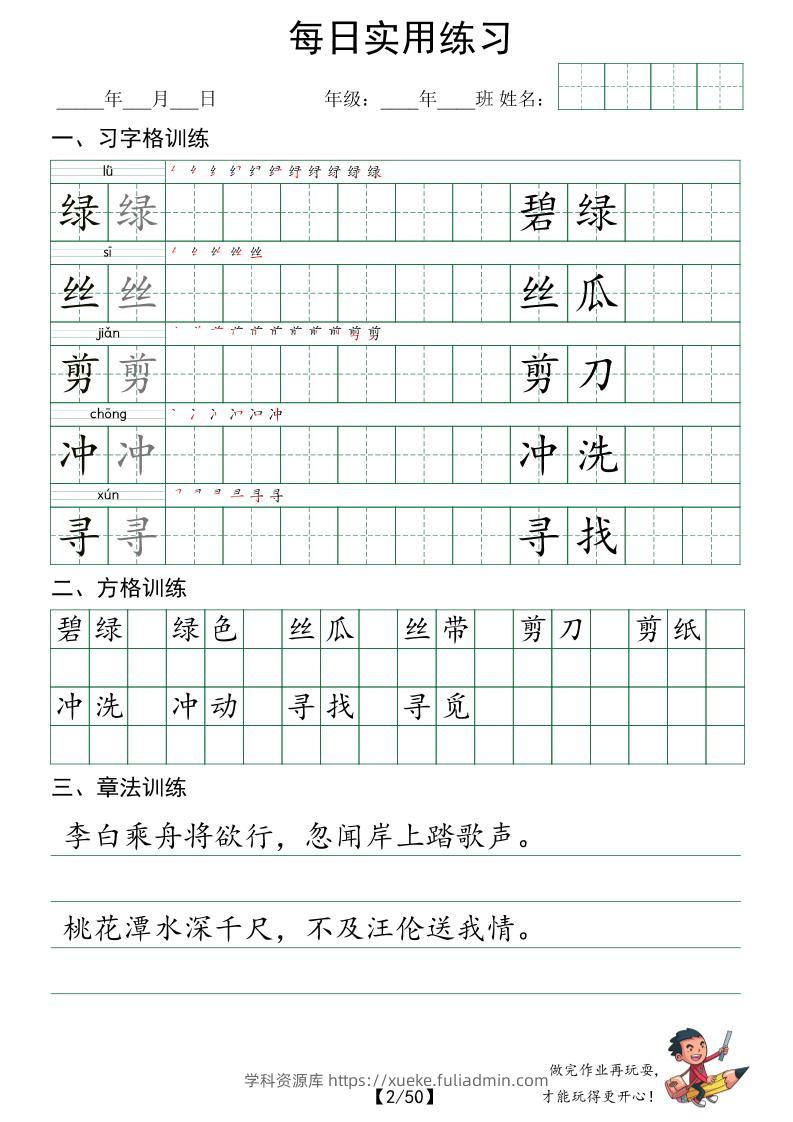 每日实用练习
_____年___月___日 年级：____年____班 姓名：
一、习字格训练
lǜ
绿 绿 碧 绿
sī
丝 丝 丝 瓜
jiǎn
剪 剪 剪 刀
chōng
冲 冲 冲 洗
xún
寻 寻 寻 找
二、方格训练
碧绿 绿色 丝瓜 丝带 剪刀 剪纸
冲洗 冲动 寻找 寻觅
三、章法训练
李白乘舟将欲行，忽闻岸上踏歌声。
桃花潭水深千尺，不及汪伦送我情。
做完作业再玩耍，
才能玩得更开心！
学科资源库 https://xueke.fuliadmin.com
【2/50】